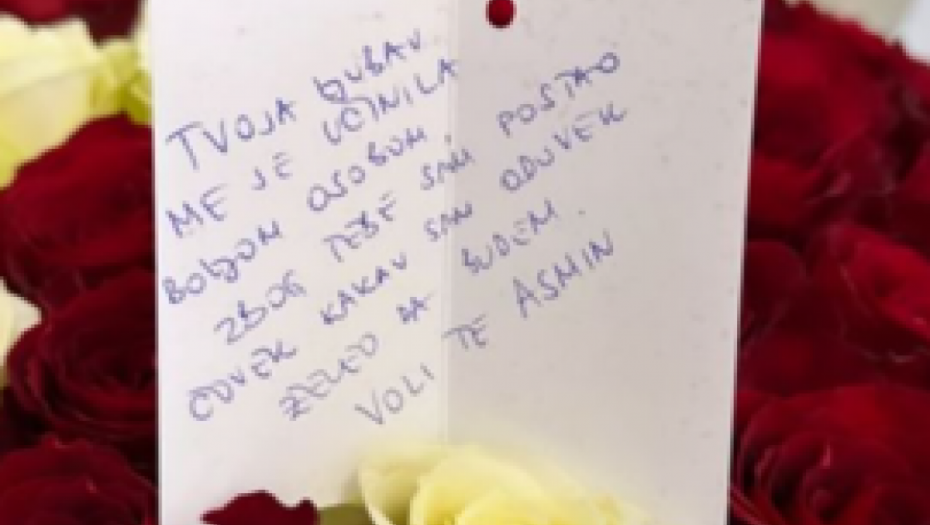 TVOJA LJUBAV
ME JE UČINILA
BOLJOM OSOBOM,
ZBOG TEBE SAM POSTAO
ČOVEK KAKAV SAM ODUVEK
ŽELEO DA BUDEM.
VOLI TE ASMIN